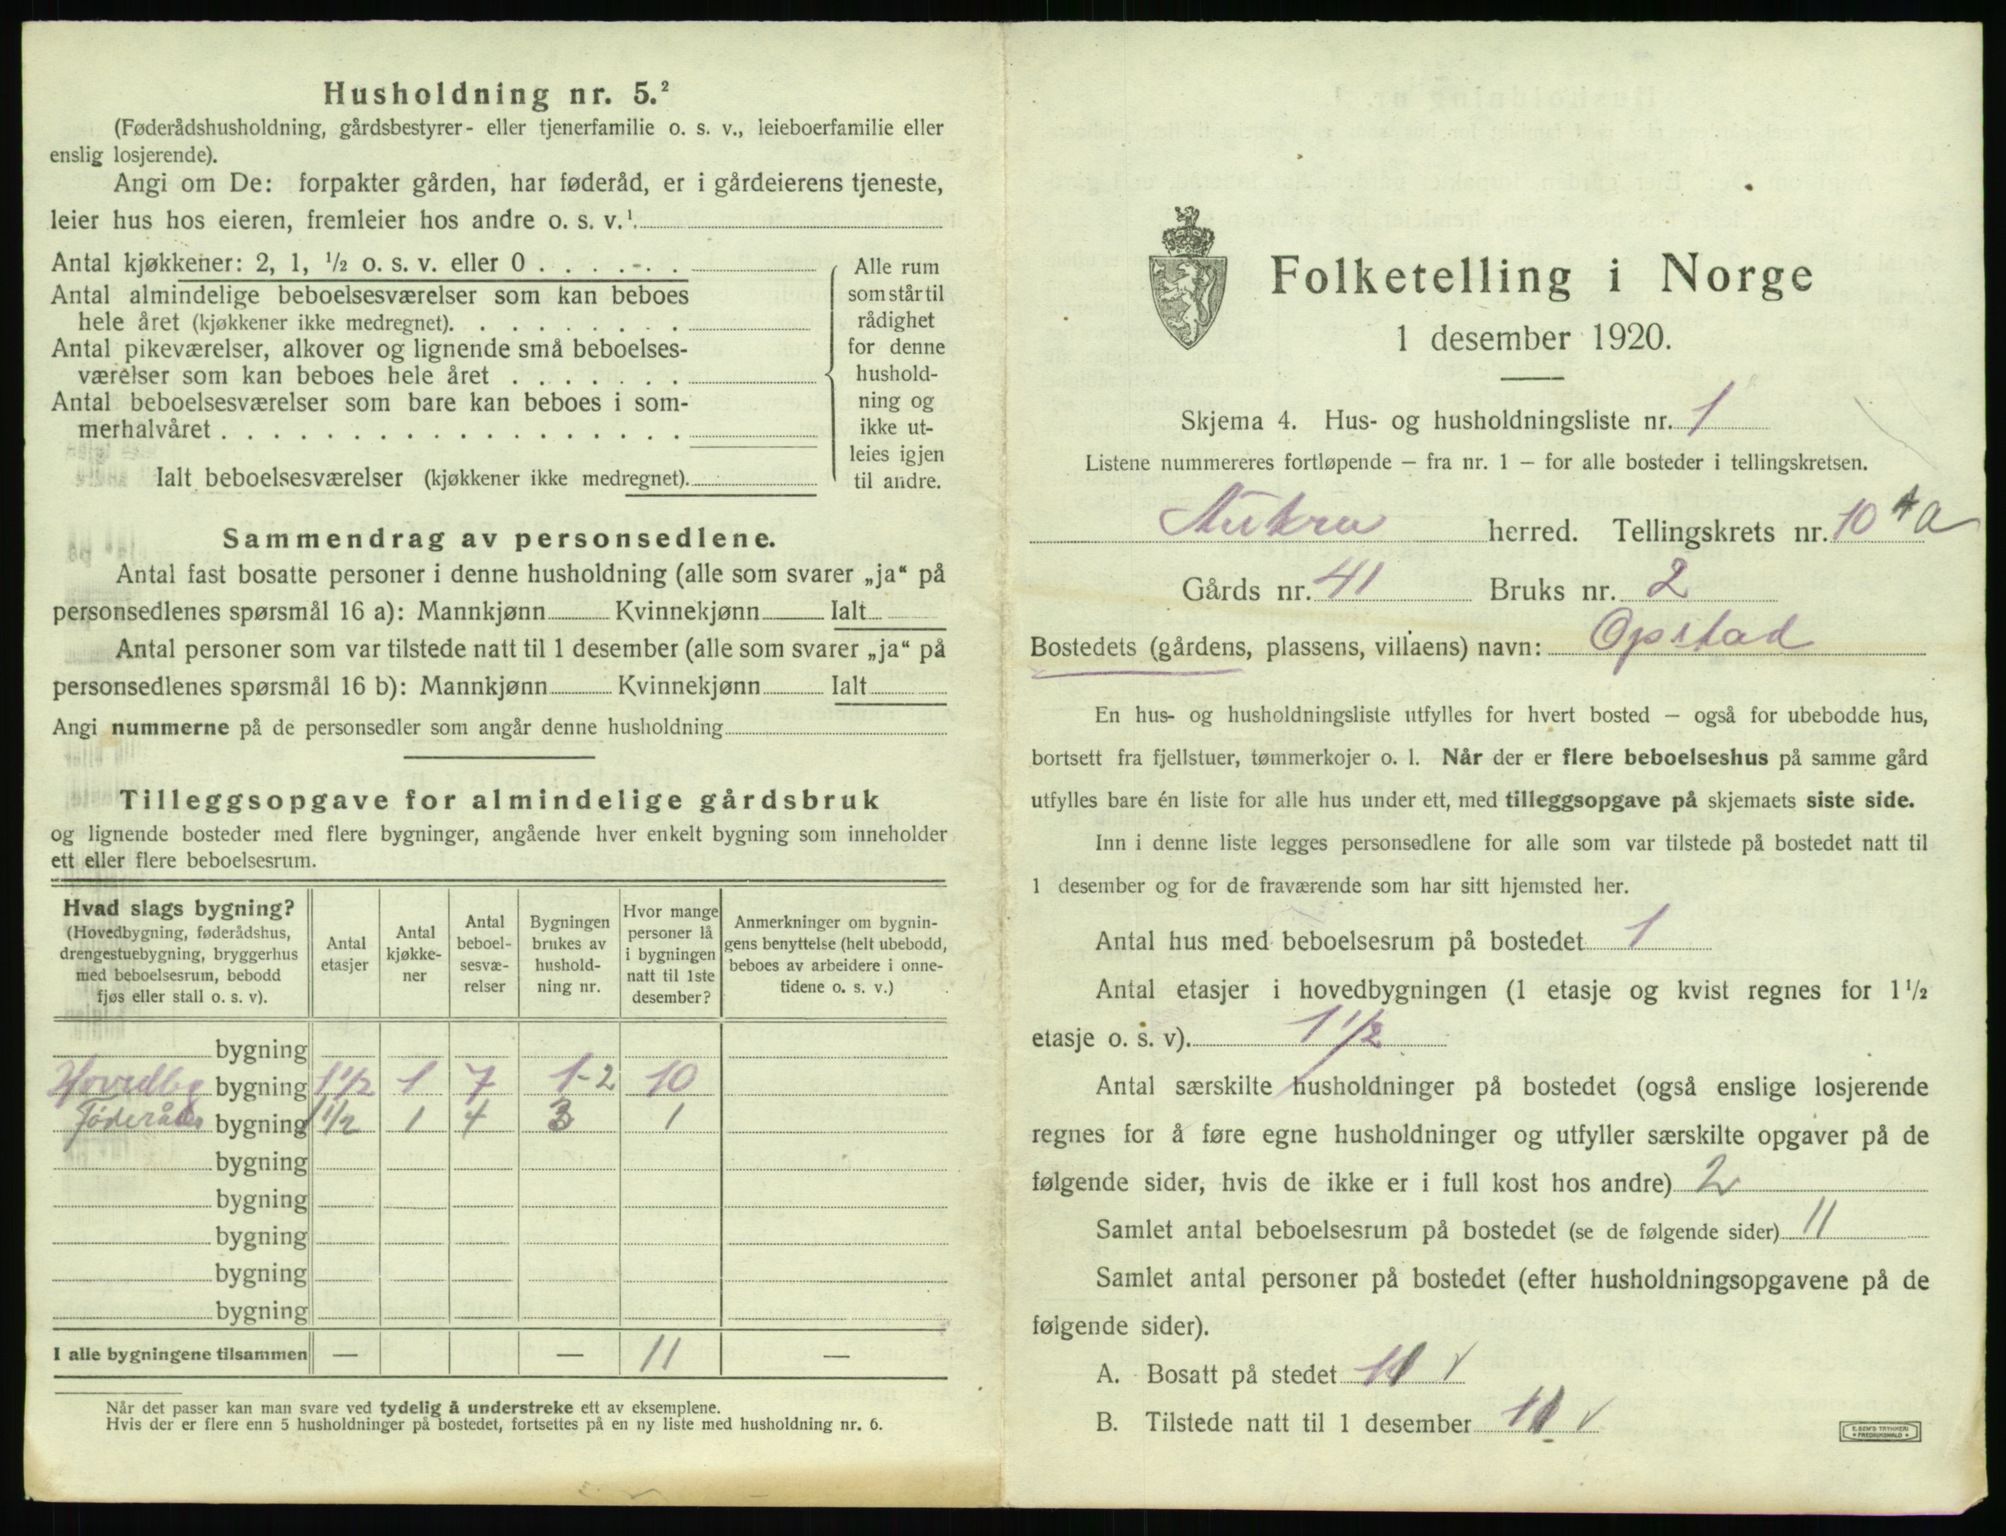 Husholdning nr. 5.²
(Føderådshusholdning, gårdsbestyrer- eller tjenerfamilie o. s. v., leieboerfamilie eller
enslig losjerende).
Angi om De: forpakter gården, har føderåd, er i gårdeierens tjeneste,
leier hus hos eieren, fremleier hos andre o. s. v.¹
Antal kjøkkener: 2, 1, ½ o. s. v. eller 0 . . . . . . .
Antal almindelige beboelsesværelser som kan beboes
hele året (kjøkkener ikke medregnet). . . . . . . . .
Antal pikeværelser, alkover og lignende små beboelses-
værelser som kan beboes hele året . . . . . . .
Antal beboelsesværelser som bare kan beboes i som-
merhalvåret . . . . . . . . . . . . . . . . . .
Ialt beboelsesværelser (kjøkkener ikke medregnet).
Alle rum
som står til
rådighet
for denne
hushold-
ning og
ikke ut-
leies igjen
til andre.
Sammendrag av personsedlene.
Antal fast bosatte personer i denne husholdning (alle som svarer „ja“ på
personsedlenes spørsmål 16 a): Mannkjønn Kvinnekjønn Ialt
Antal personer som var tilstede natt til 1 desember (alle som svarer „ja“ på
personsedlenes spørsmål 16 b): Mannkjønn Kvinnekjønn Ialt
Angi nummerne på de personsedler som angår denne husholdning
Tilleggsopgave for almindelige gårdsbruk
og lignende bosteder med flere bygninger, angående hver enkelt bygning som inneholder
ett eller flere beboelsesrum.
Hvad slags bygning?
(Hovedbygning, føderådshus,
drengestuebygning, bryggerhus
med beboelsesrum, bebodd
fjøs eller stall o. s. v).
Antal
etasjer
Antal
kjøkke-
ner
Antal
beboel-
sesvæ-
relser
Bygningen
brukes av
hushold-
ning nr.
Hvor mange
personer lå
i bygningen
natt til 1ste
desember?
Anmerkninger om bygnin-
gens benyttelse (helt ubebodd,
beboes av arbeidere i onne-
tidene o. s. v.)
bygning
Hovedbg bygning 1½ 1 7 1-2 10
Føderåds bygning 1½ 1 4 3 1
bygning
bygning
bygning
bygning
bygning
I alle bygningene tilsammen — — 11 —
Når det passer kan man svare ved tydelig å understreke ett av eksemplene.
Hvis der er flere enn 5 husholdninger på bostedet, fortsettes på en ny liste med husholdning nr. 6.
Folketelling i Norge
1 desember 1920.
Skjema 4. Hus- og husholdningsliste nr. 1
Listene nummereres fortløpende — fra nr. 1 — for alle bosteder i tellingskretsen.
Aukra herred. Tellingskrets nr. 10 a
Gårds nr. 41 Bruks nr. 2
Bostedets (gårdens, plassens, villaens) navn: Opstad
En hus- og husholdningsliste utfylles for hvert bosted — også for ubebodde hus,
bortsett fra fjellstuer, tømmerkojer o. l. Når der er flere beboelseshus på samme gård
utfylles bare én liste for alle hus under ett, med tilleggsopgave på skjemaets siste side.
Inn i denne liste legges personsedlene for alle som var tilstede på bostedet natt til
1 desember og for de fraværende som har sitt hjemsted her.
Antal hus med beboelsesrum på bostedet 1
Antal etasjer i hovedbygningen (1 etasje og kvist regnes for 1½
etasje o. s. v). 1½
Antal særskilte husholdninger på bostedet (også enslige losjerende
regnes for å føre egne husholdninger og utfyller særskilte opgaver på de
følgende sider, hvis de ikke er i full kost hos andre) 2
Samlet antal beboelsesrum på bostedet (se de følgende sider) 11
Samlet antal personer på bostedet (efter husholdningsopgavene på de
følgende sider).
A. Bosatt på stedet 11 v
B. Tilstede natt til 1 desember 11 v
E. SEM'S TRYKKERI
FREDRIKSHALD